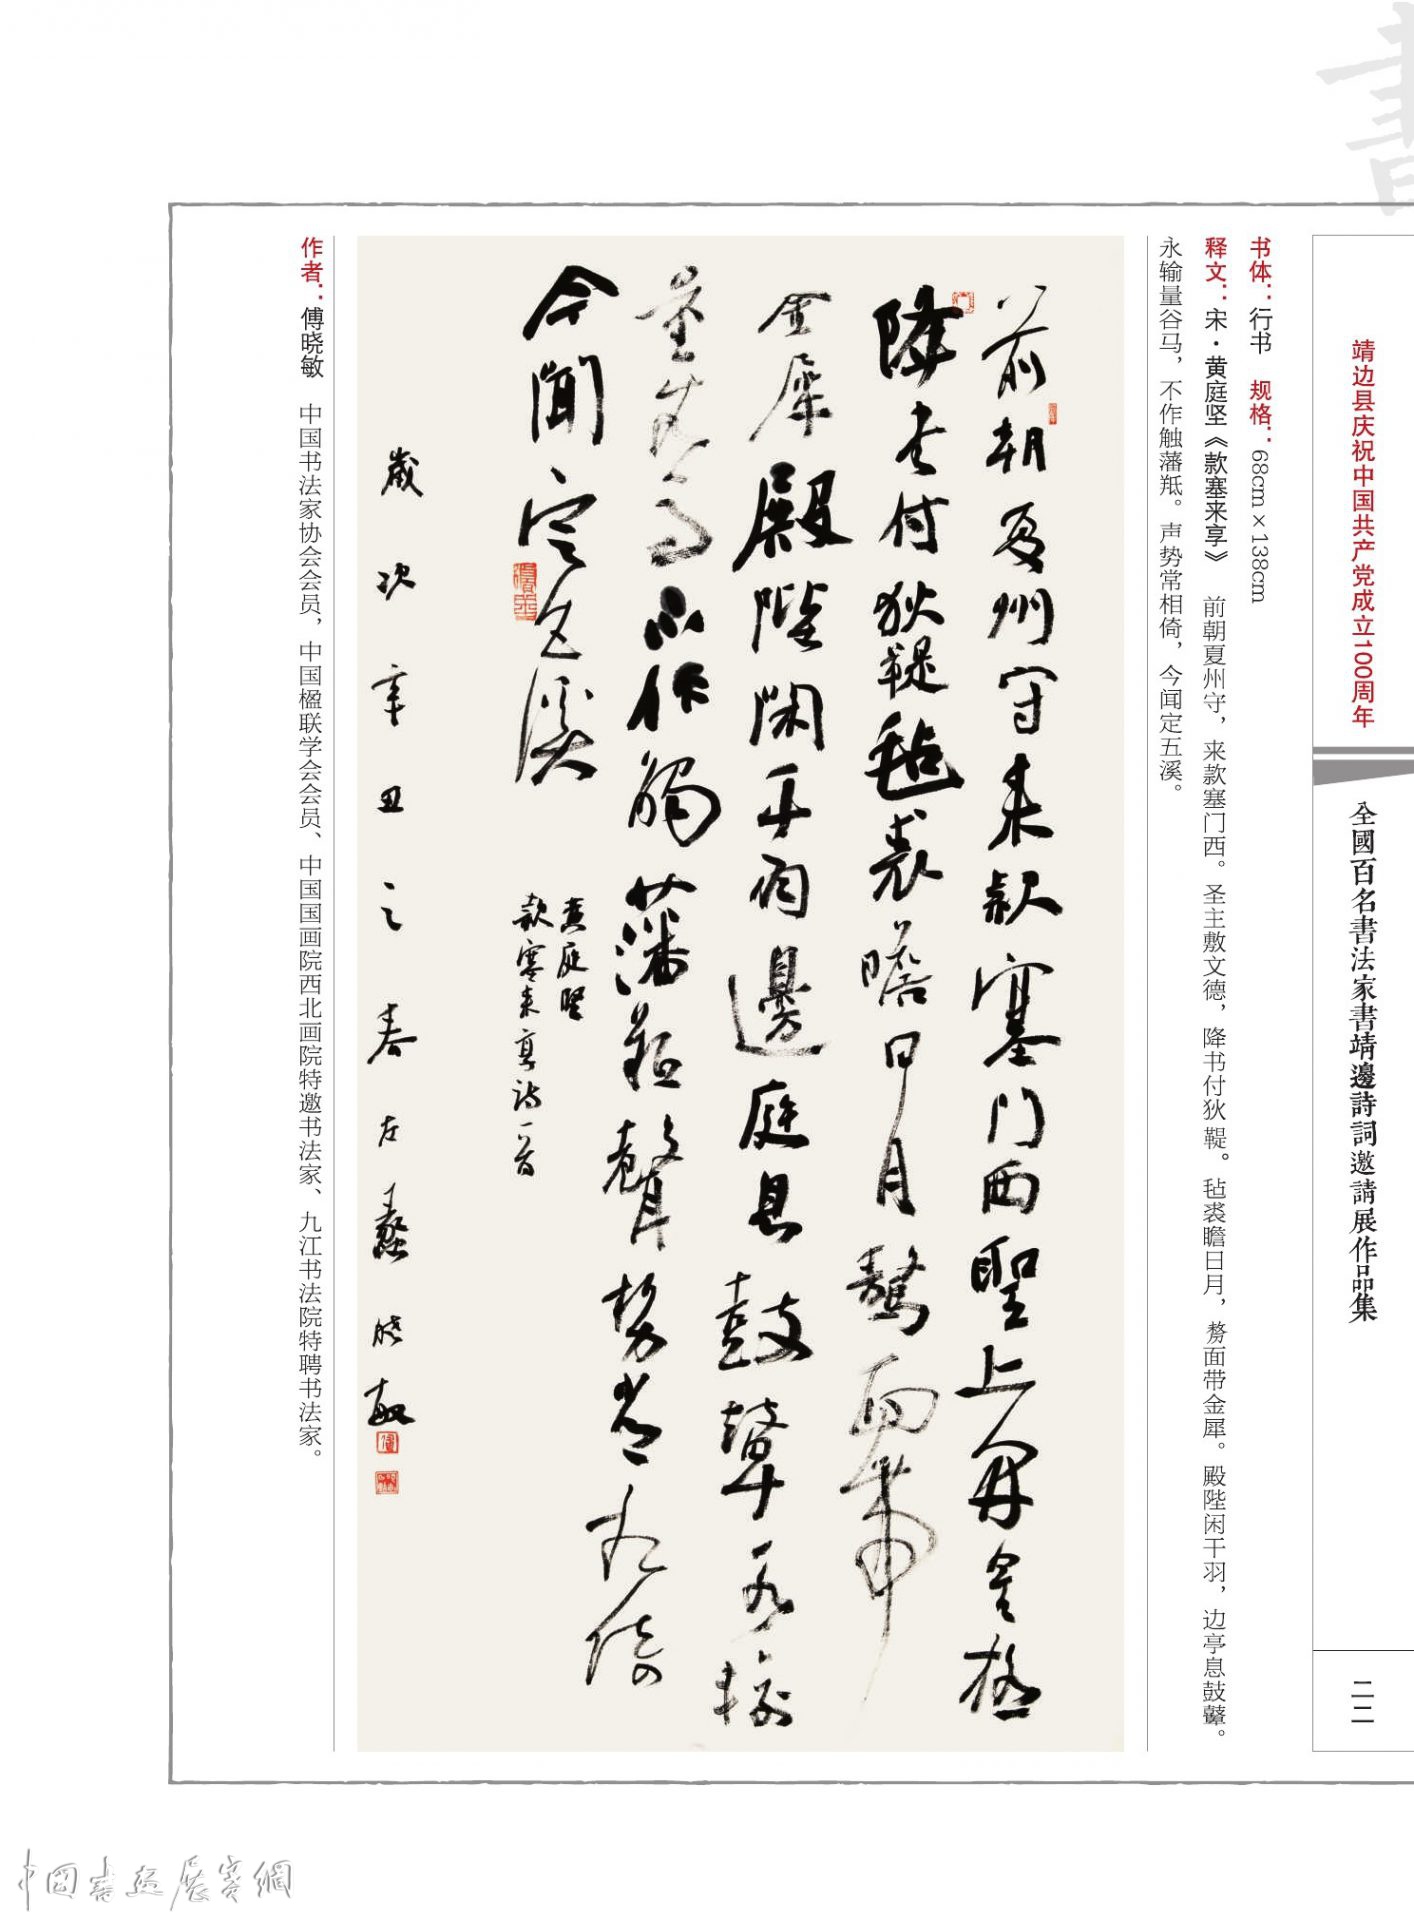 書
靖边县庆祝中国共产党成立100周年
全國百名書法家書靖邊詩詞邀請展作品集
二二
书体：行书　规格：68cm×138cm
释文：宋·黄庭坚《款塞来享》　前朝夏州守，来款塞门西。圣主敷文德，降书付狄鞮。毡裘瞻日月，剺面带金犀。殿陛闲干羽，边亭息鼓鼙。
永输量谷马，不作触藩羝。声势常相倚，今闻定五溪。
前朝夏州守来款塞门西聖上
降書付狄鞮毡裘瞻日月剺面带
金犀殿陛閑干羽邊庭息鼓鼙永輸
量谷马不作觸藩羝聲势常相倚
今聞定五溪
黄庭坚
款塞来享诗一首
歲次辛丑之春 晓敏
作者：傅晓敏　中国书法家协会会员，中国楹联学会会员、中国国画院西北画院特邀书法家、九江书法院特聘书法家。
中國書画展赛網